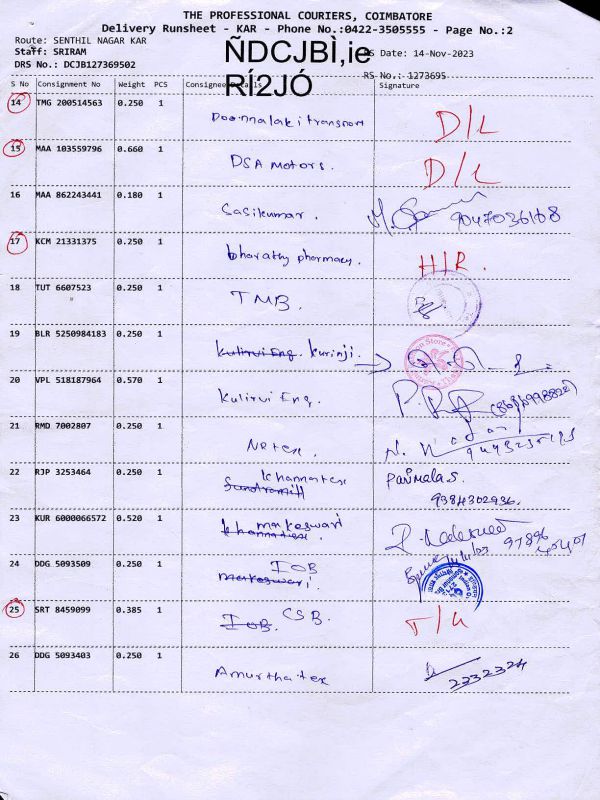 THE PROFESSIONAL COURIERS, COIMBATORE
Delivery Runsheet - KAR - Phone No.:0422-3505555 - Page No.:2
Route: SENTHIL NAGAR KAR
Staff: SRIRAM
DRS No.: DCJB127369502
ÑDCJBÌ,ie
RÍ2JÓ
RS Date: 14-Nov-2023
RS No.: 1273695
S No Consignment No Weight PCS Consignee Details Signature
14 TMG 200514563 0.250 1 D/L
15 MAA 103559796 0.660 1 DSA Motors. D/L
16 MAA 862243441 0.180 1 Sasikumar. 9047036168
17 KCM 21331375 0.250 1 bharathy pharmacy. H/R.
18 TUT 6607523 0.250 1 TMB.
19 BLR 5250984183 0.250 1 Kulirvi Eng. Kurinji.
20 VPL 518187964 0.570 1 Kulirvi Eng.
21 RMD 7002807 0.250 1
22 RJP 3253464 0.250 1 Khannatex Parimala S.
9384302936.
23 KUR 6000066572 0.520 1 makeswari
khannatex
24 DDG 5093509 0.250 1 IOB
makeswari.
25 SRT 8459099 0.385 1 IOB. CSB.
26 DDG 5093403 0.250 1 Amurthatex 2232324